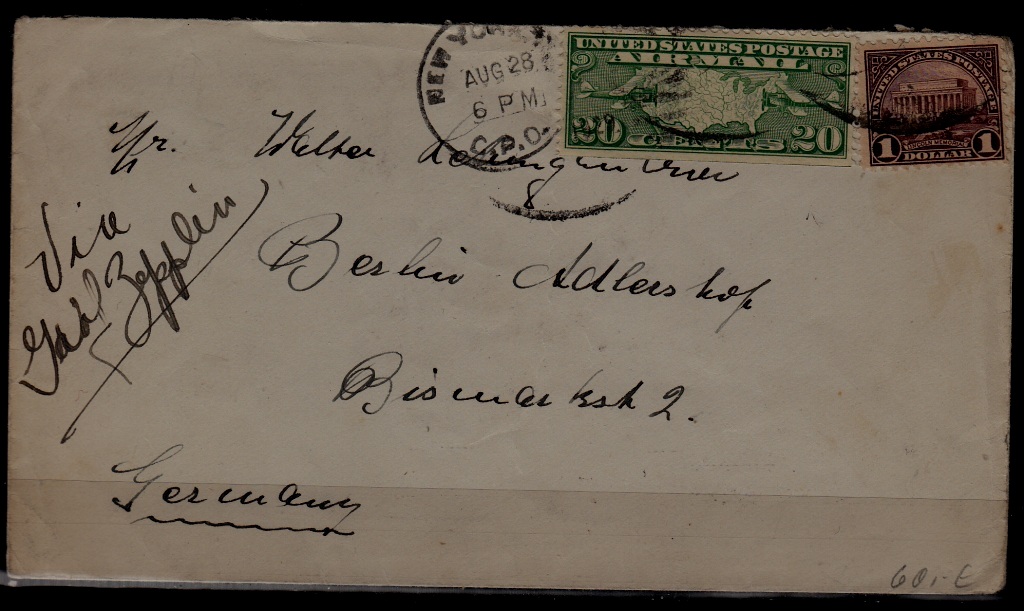 NEW YORK, N.Y.
AUG 28
6 PM
G.P.O.
UNITED STATES POSTAGE
AIR MAIL
20 CENTS 20
UNITED STATES POSTAGE
LINCOLN MEMORIAL
1 DOLLAR 1
Mr. Walter
8
Via
Graf Zepplin
Berlin Adlershof
Bismarkstr 2.
Germany
60,-E